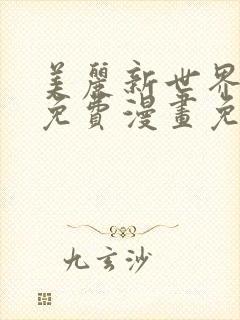 美麗新世界
免費漫畫免
九玄沙